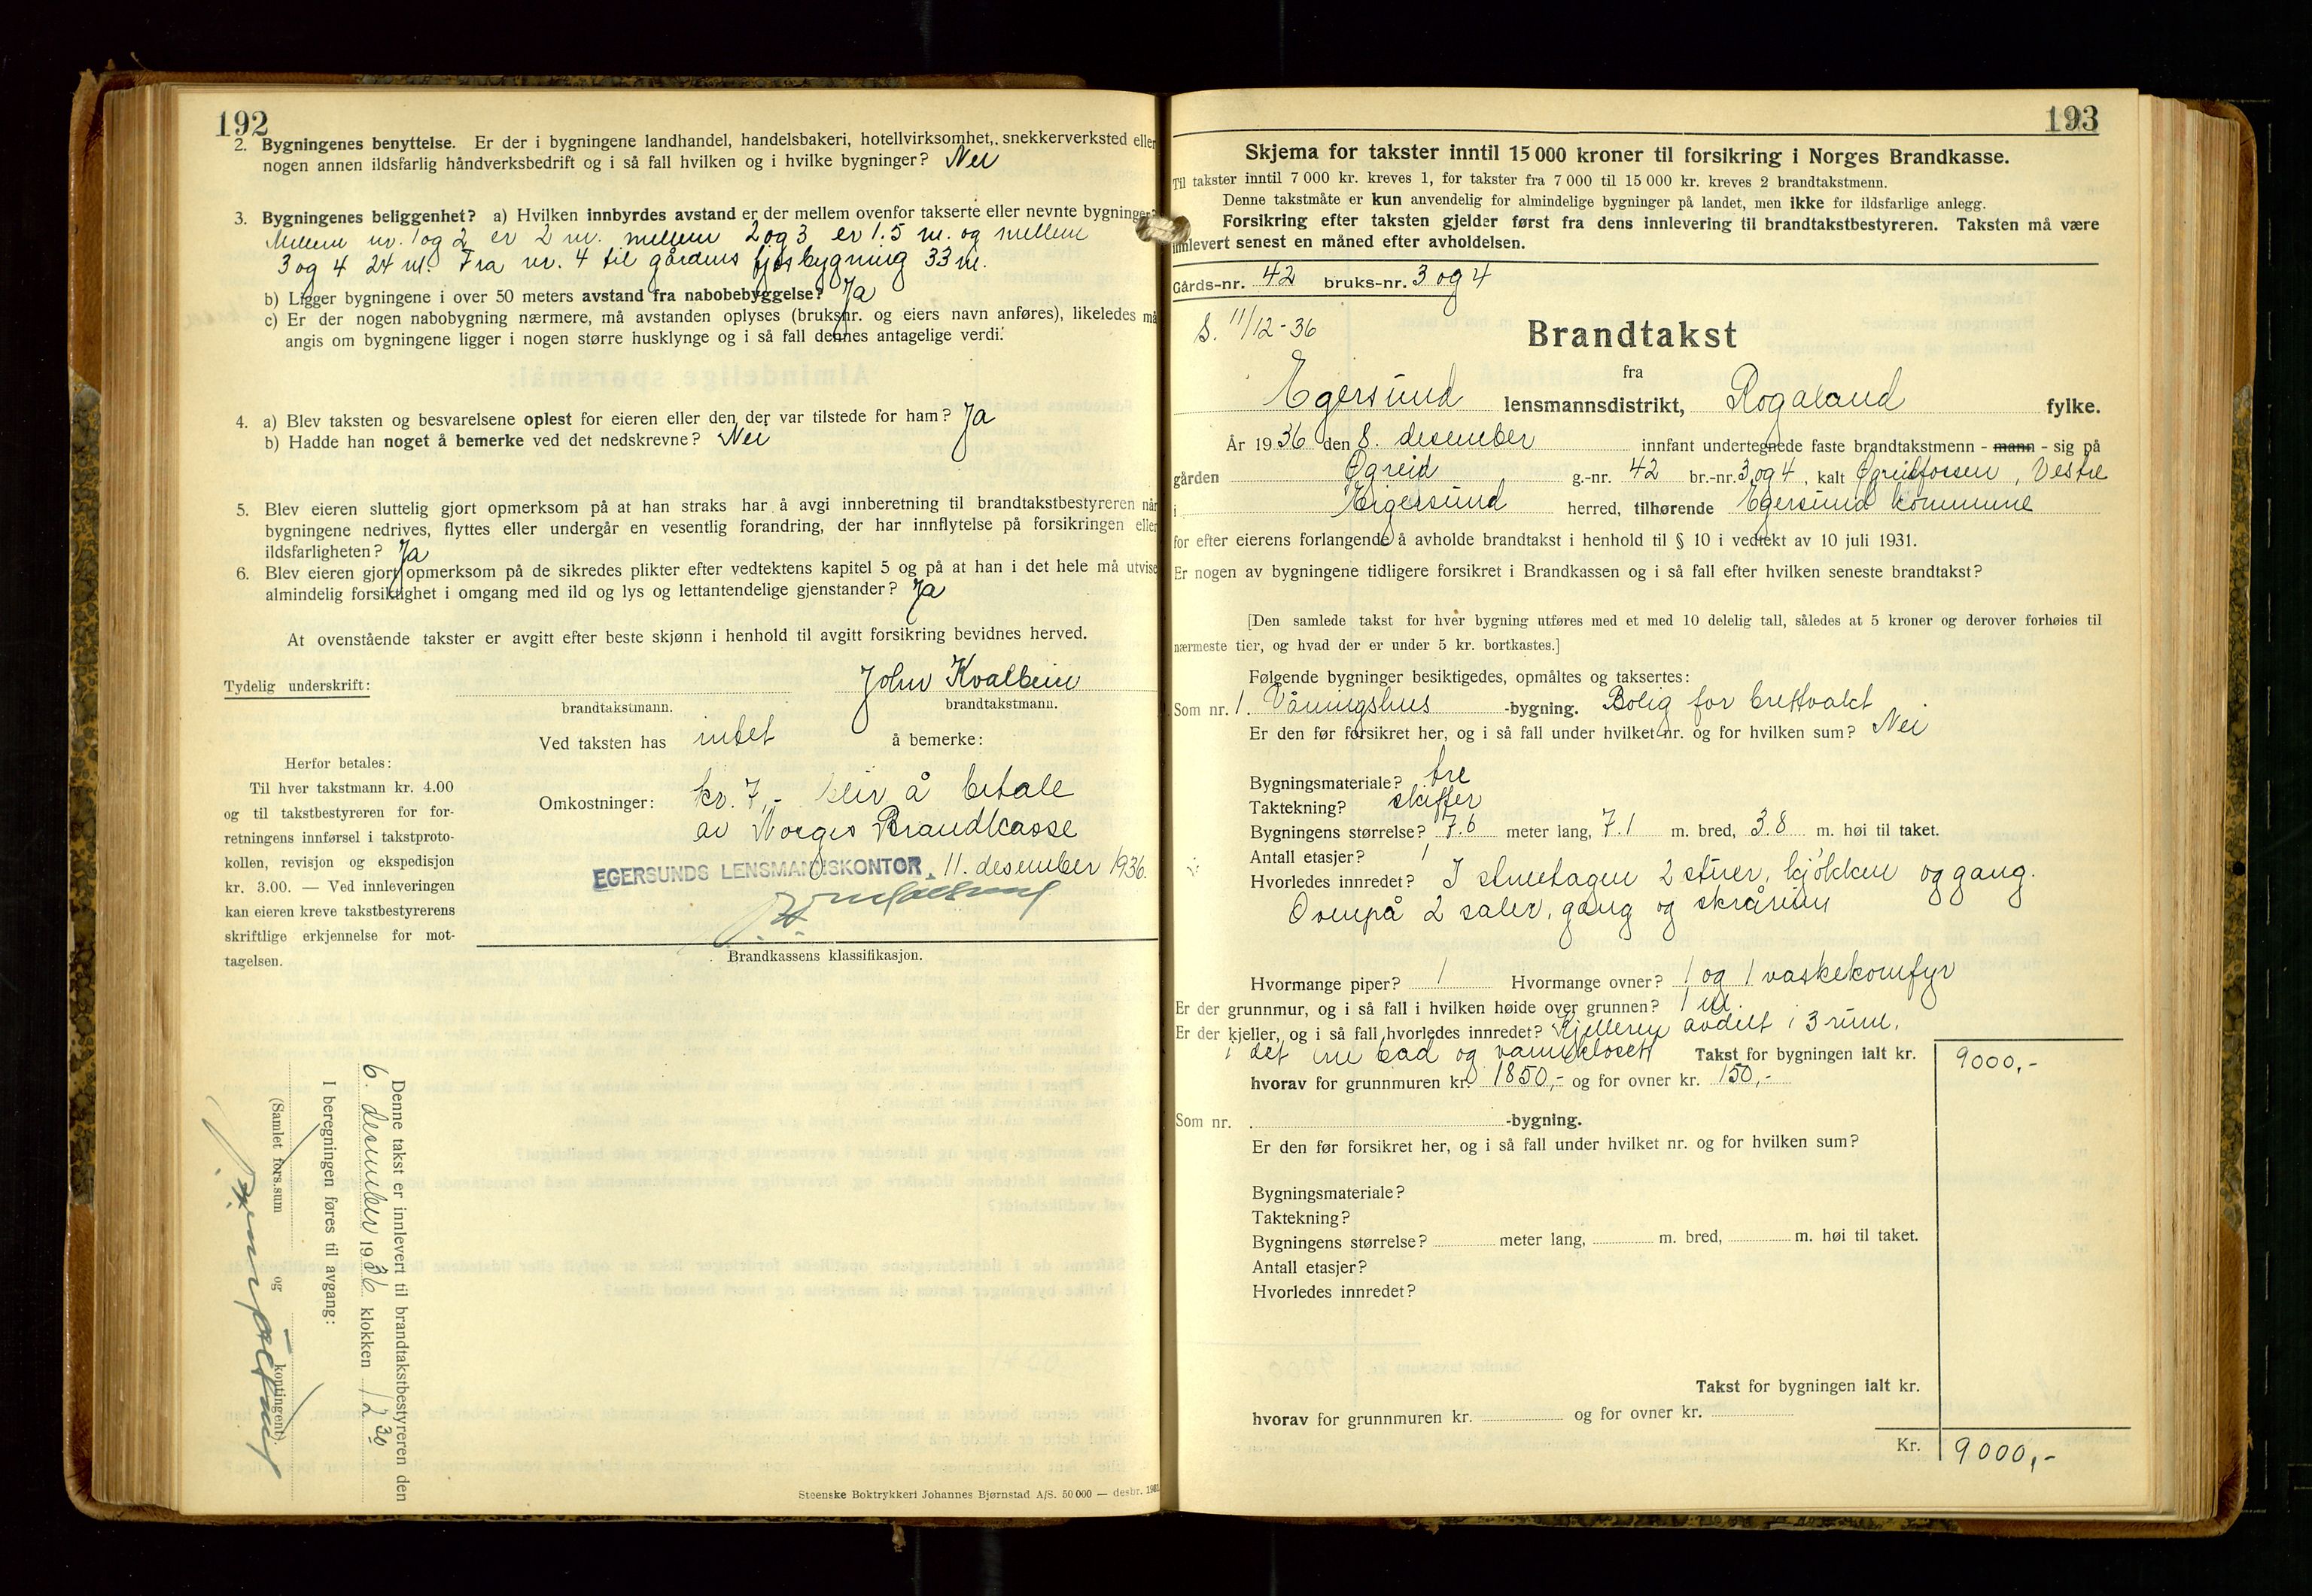 192
2. Bygningenes benyttelse. Er der i bygningene landhandel, handelsbakeri, hotellvirksomhet, snekkerverksted eller
nogen annen ildsfarlig håndverksbedrift og i så fall hvilken og i hvilke bygninger? Nei
3. Bygningenes beliggenhet? a) Hvilken innbyrdes avstand er der mellem ovenfor takserte eller nevnte bygninger?
Mellem nr. 1 og 2 er 2 m. mellem 2 og 3 er 1.5 m. og mellem
3 og 4 24 m. Fra nr. 4 til gårdens fjøsbygning 33 m.
b) Ligger bygningene i over 50 meters avstand fra nabobebyggelse? Ja
c) Er der nogen nabobygning nærmere, må avstanden oplyses (bruksnr. og eiers navn anføres), likeledes må
angis om bygningene ligger i nogen større husklynge og i så fall dennes antagelige verdi.
4. a) Blev taksten og besvarelsene oplest for eieren eller den der var tilstede for ham? Ja
b) Hadde han noget å bemerke ved det nedskrevne? Nei
5. Blev eieren sluttelig gjort opmerksom på at han straks har å avgi innberetning til brandtakstbestyreren når
bygningene nedrives, flyttes eller undergår en vesentlig forandring, der har innflytelse på forsikringen eller
ildsfarligheten? Ja
6. Blev eieren gjort opmerksom på de sikredes plikter efter vedtektens kapitel 5 og på at han i det hele må utvise
almindelig forsiktighet i omgang med ild og lys og lettantendelige gjenstander? Ja
At ovenstående takster er avgitt efter beste skjønn i henhold til avgitt forsikring bevidnes herved.
Tydelig underskrift: John Kvalbein
brandtakstmann. brandtakstmann.
Ved taksten has intet å bemerke:
Herfor betales:
Til hver takstmann kr. 4.00
og til takstbestyreren for for-
retningens innførsel i takstproto-
kollen, revisjon og ekspedisjon
kr. 3.00. — Ved innleveringen
kan eieren kreve takstbestyrerens
skriftlige erkjennelse for mot-
tagelsen.
Omkostninger: kr. 7,- blir å betale
av Norges Brandkasse
EGERSUNDS LENSMANNSKONTOR, 11. desember 1936.
Brandkassens klassifikasjon.
Denne takst er innlevert til brandtakstbestyreren den
6. desember 1936 klokken 12 30
I beregningen føres til avgang:
(Samlet fors.sum og kontingent).
Steenske Boktrykkeri Johannes Bjørnstad A/S. 50 000 — desbr. 1931
193
Skjema for takster inntil 15 000 kroner til forsikring i Norges Brandkasse.
Til takster inntil 7 000 kr. kreves 1, for takster fra 7 000 til 15 000 kr. kreves 2 brandtakstmenn.
Denne takstmåte er kun anvendelig for almindelige bygninger på landet, men ikke for ildsfarlige anlegg.
Forsikring efter taksten gjelder først fra dens innlevering til brandtakstbestyreren. Taksten må være
innlevert senest en måned efter avholdelsen.
Gårds-nr. 42 bruks-nr. 3 og 4
S. 11/12-36
Brandtakst
fra
Egersund lensmannsdistrikt, Rogaland fylke.
År 1936 den 8. desember innfant undertegnede faste brandtakstmenn - mann - sig på
gården Øgreid g.-nr. 42 br.-nr. 3 og 4, kalt Øgreidfossen, Vestre
i Eigersund herred, tilhørende Egersund kommune
for efter eierens forlangende å avholde brandtakst i henhold til § 10 i vedtekt av 10 juli 1931.
Er nogen av bygningene tidligere forsikret i Brandkassen og i så fall efter hvilken seneste brandtakst?
[Den samlede takst for hver bygning utføres med et med 10 delelig tall, således at 5 kroner og derover forhøies til
nærmeste tier, og hvad der er under 5 kr. bortkastes.]
Følgende bygninger besiktigedes, opmåltes og taksertes:
Som nr. 1. Våningshus -bygning. Bolig for
Er den før forsikret her, og i så fall under hvilket nr. og for hvilken sum? Nei
Bygningsmateriale? tre
Taktekning? skiffer
Bygningens størrelse? 7.6 meter lang, 7.1 m. bred, 3.8 m. høi til taket.
Antall etasjer? 1
Hvorledes innredet? I stueetagen 2 stuer, kjøkken og gang.
Ovenpå 2 saler, gang og skrårum
Hvormange piper? 1 Hvormange ovner? 1 og 1 vaskekomfyr
Er der grunnmur, og i så fall i hvilken høide over grunnen? 1 m.
Er der kjeller, og i så fall hvorledes innredet? Kjelleren avdelt i 3 rum,
i det ene bad og vannklosett Takst for bygningen ialt kr. 9000,-
hvorav for grunnmuren kr. 1850,- og for ovner kr. 150,-
Som nr. -bygning.
Er den før forsikret her, og i så fall under hvilket nr. og for hvilken sum?
Bygningsmateriale?
Taktekning?
Bygningens størrelse? meter lang, m. bred, m. høi til taket.
Antall etasjer?
Hvorledes innredet?
Takst for bygningen ialt kr.
hvorav for grunnmuren kr. og for ovner kr.
Kr. 9000,-